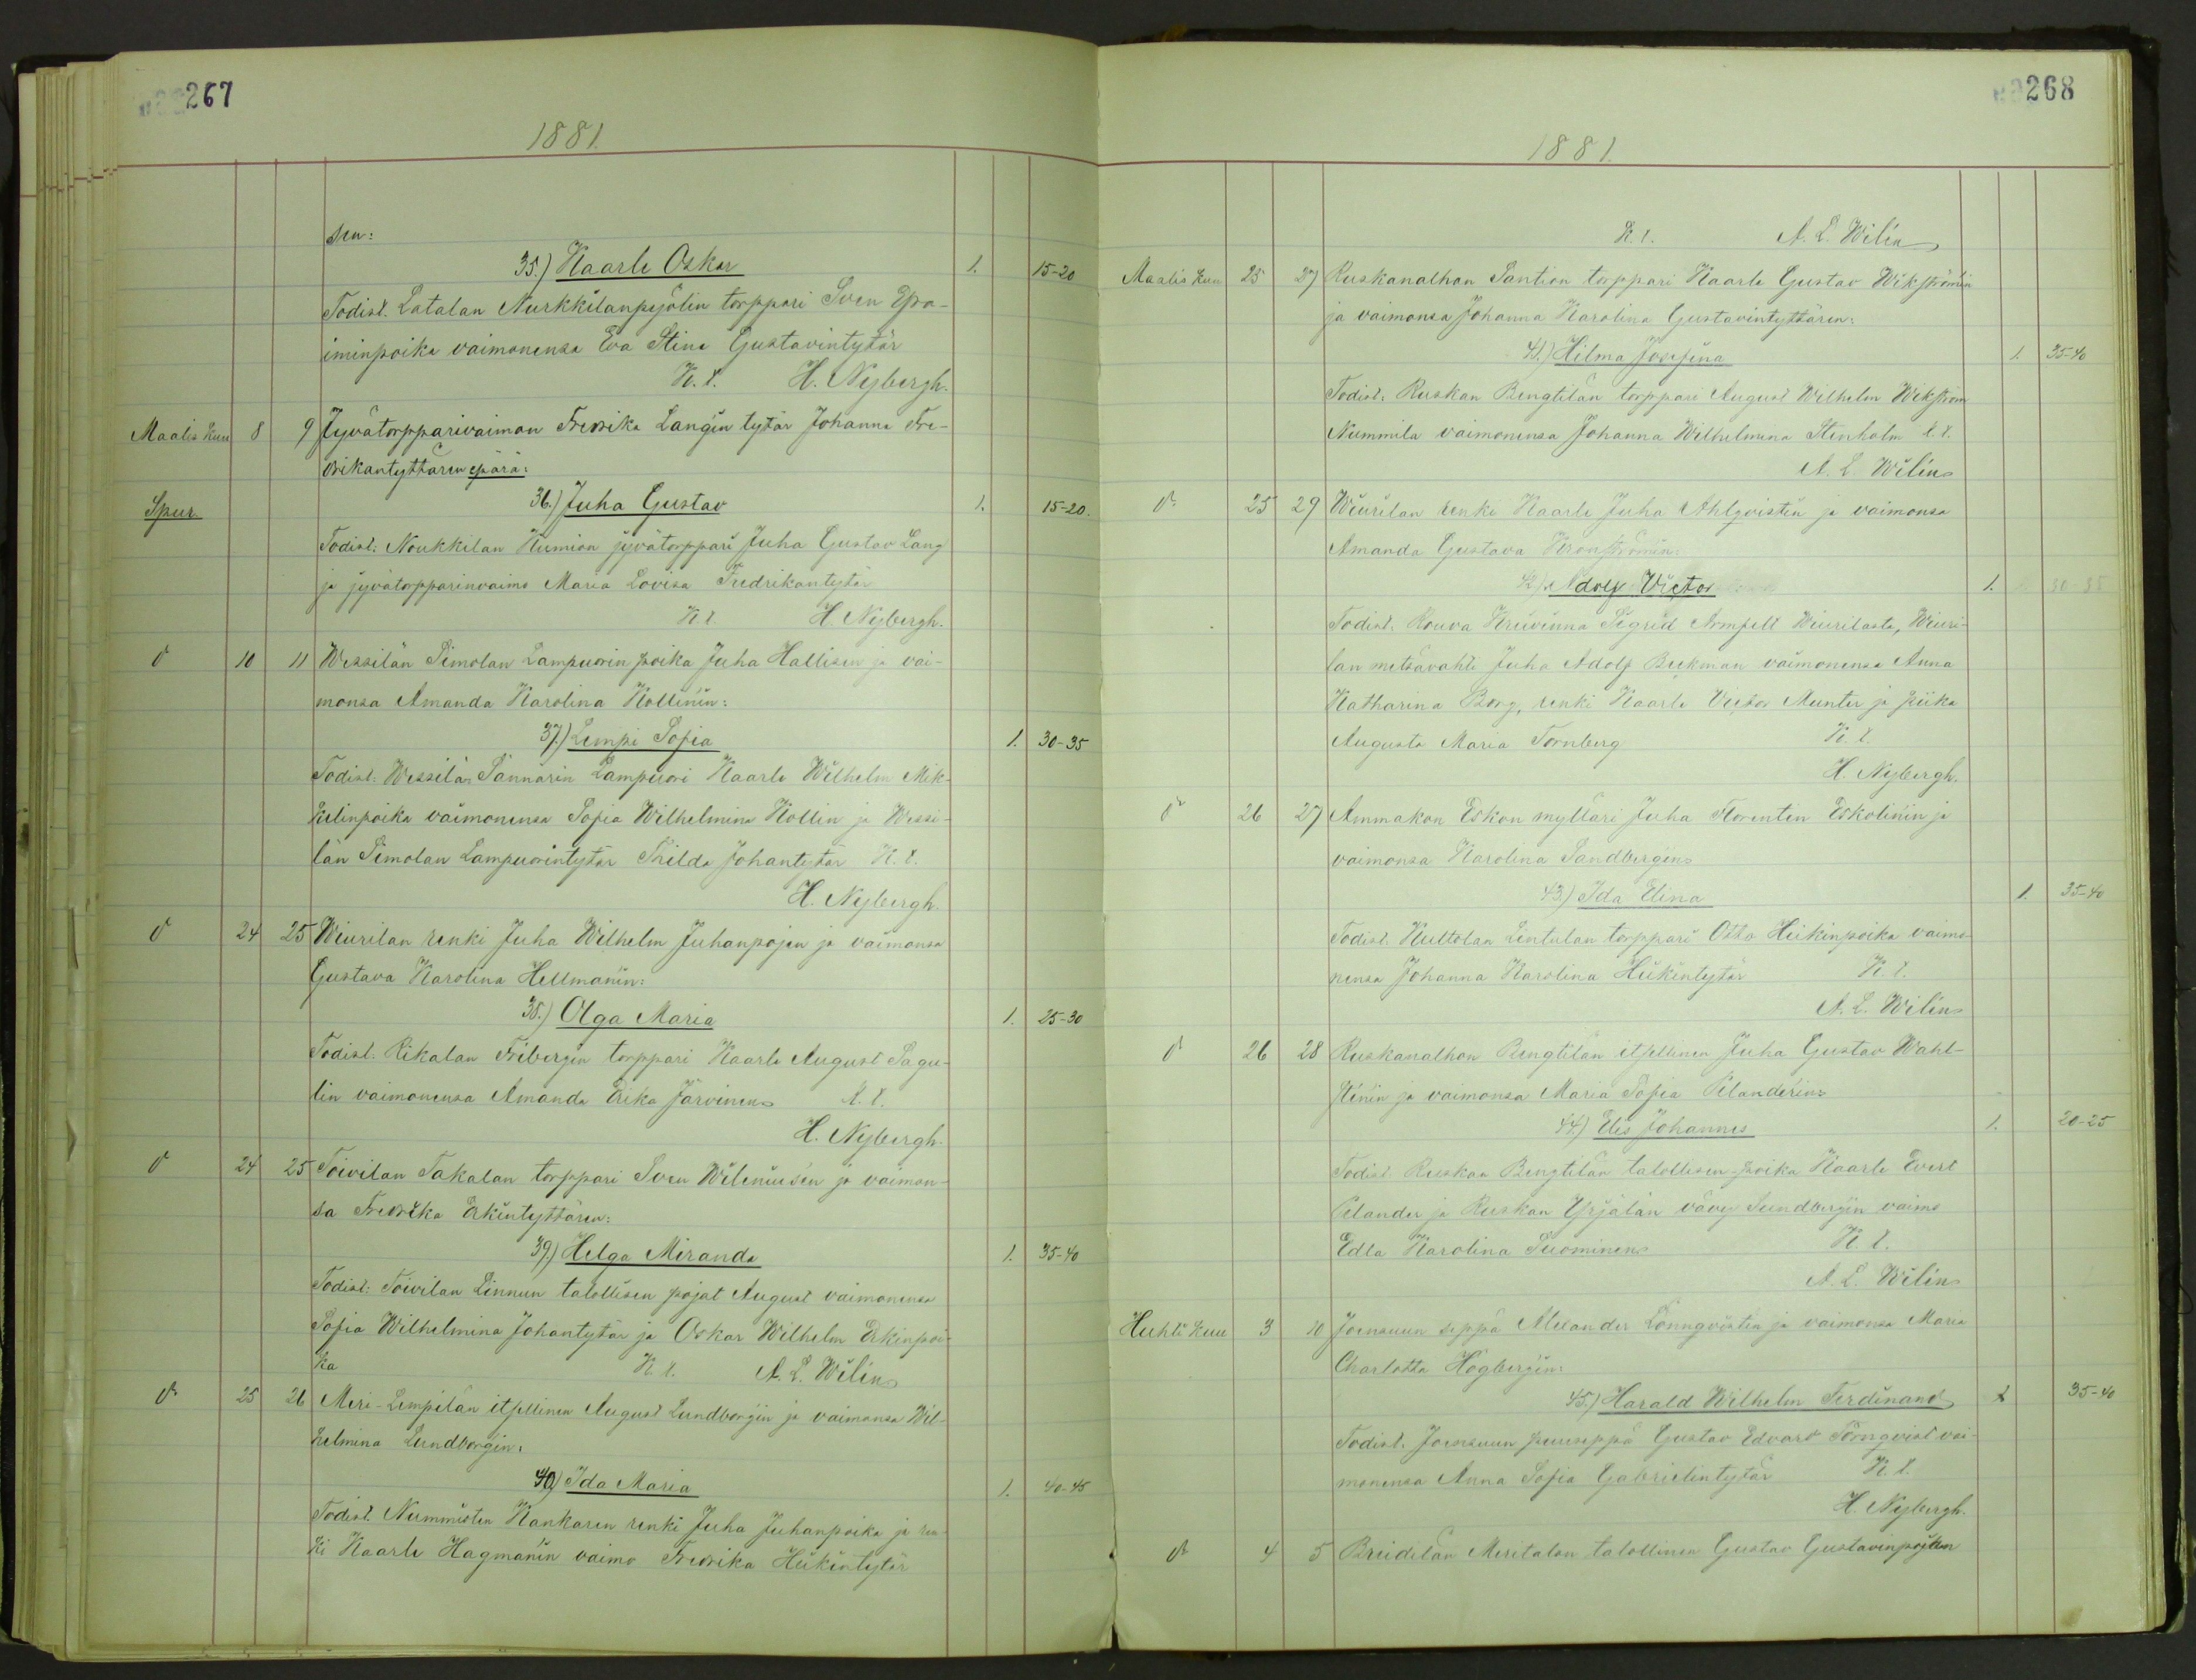 267
1881.
sen:
35.) Kaarle Oskar 1. 15-20
Todist. Latalan Nurkkilanpejolin torppari Sven Epra-
iminpoika vaimonensa Eva Stina Gustavintytär
K. t. H. Nybergh.
Maalis kuu 8 9 Jyvätorpparivaimon Fredrika Langin tytär Johanna Fre-
drikantyttären epärä:
Spur. 36.) Juha Gustav 1. 15-20.
Todist: Noukkilan Kumion jyvätorppari Juha Gustav Lang
ja jyvätorpparinvaimo Maria Lovisa Fredrikantytär
K t. H. Nybergh.
d 10 11 Wessilän Simolan Lampuorin poika Juha Hallisen ja vai-
monsa Amanda Karolina Kollinin:
37.) Lempi Sofia 1. 30-35
Todist: Wessilän Pännärin Lampuori Kaarle Wilhelm Mik-
kelinpoika vaimonensa Sofia Wilhelmina Kollin ja Wessi-
län Simolan Lampuorintytär Thilda Johantytär K. t.
H. Nybergh.
d 24 25 Wiurilan renki Juha Wilhelm Juhanpojan ja vaimonsa
Gustava Karolina Hellmanin:
38.) Olga Maria 1. 25-30
Todist. Rikalan Fribergin torppari Kaarle August Sagu-
lin vaimonensa Amanda Erika Järvinen K. t.
H. Nybergh.
d 24 25 Toivilan Takalan torppari Sven Wileniusen ja vaimon-
sa Fredrika Erkintyttären:
39.) Helga Miranda 1. 35-40
Todist: Toivilan Linnun talollisen pojat August vaimonensa
Sofia Wilhelmina Johantytär ja Oskar Wilhelm Erkinpoi-
ka K. t. A. L. Wilén
d 25 26 Meri-Lempilän itsellinen August Lundborgin ja vaimonsa Wil-
helmina Lundborgin:
40) Ida Maria 1. 40-45
Todist. Nummisten Kankaren renki Juha Juhanpoika ja ren-
ki Kaarle Hagmanin vaimo Fredrika Heikintytär
268
1881.
K. t. A. L. Wilén
Maalis kuu 25 27 Ruskanalhon Santion torppari Kaarle Gustav Wikströmin
ja vaimonsa Johanna Karolina Gustavintyttären:
41.) Hilma Josefina 1. 35-40
Todist: Ruskan Bengtilän torppari August Wilhelm Wikström
Nummila vaimonensa Johanna Wilhelmina Stenholm K. t.
A. L. Wilén
d 25 29 Wiurilan renki Kaarle Juha Ahlqvistin ja vaimonsa
Amanda Gustava Kronströmin:
42.) Adolf Victor 1. 30-35
Todist. Rouva Kreivinna Sigrid Armfelt Wiurilasta, Wiuri-
lan metsävahti Juha Adolf Beckman vaimonensa Anna
Katharina Borg, renki Kaarle Victor Munter ja piika
Augusta Maria Tornberg K. t.
H. Nybergh.
d 26 27 Ammakon Eskon mylläri Juha Florentin Eskolinin ja
vaimonsa Karolina Sandbergin
43.) Ida Elina 1. 35-40
Todist. Kultolan Lintulan torppari Otto Heikinpoika vaimo-
nensa Johanna Karolina Heikintytär K. t.
A. L. Wilén
d 26 28 Ruskanalhon Bengtilän itsellinen Juha Gustav Wahl-
stenin ja vaimonsa Maria Sofia Pelanderin:
44.) Elis Johannes 1. 20-25
Todist. Ruskan Bengtilän talollisen poika Kaarle Evert
Pelander ja Ruskan Yrjälän vävy Sundbergin vaimo
Edla Karolina Suominen K. t.
A. L. Wilén
Huhti kuu 3 10 Joensuun seppä Alexander Lönnqvistin ja vaimonsa Maria
Charlotta Högbergin:
45.) Harald Wilhelm Ferdinand 1 35-40
Todist. Joensuun puuseppä Gustav Edvard Törnqvist vai-
monensa Anna Sofia Gabrielintytär K. t.
H. Nybergh.
d 4 5 Breidilän Meritalon talollinen Gustav Gustavinpojan